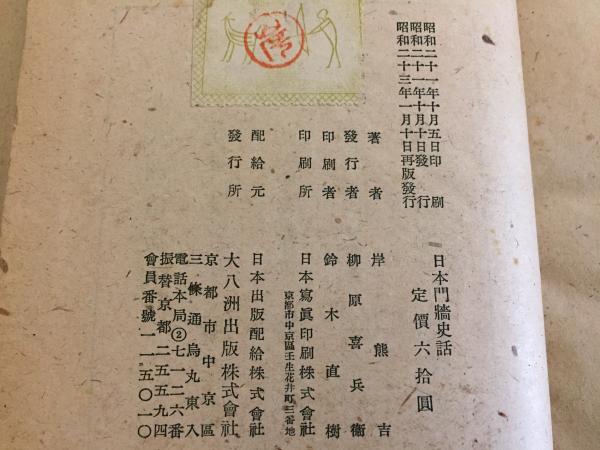 昭和二十一年十月五日印刷
昭和二十一年十月十日發行
昭和二十三年一月十日再版發行
日本門牆史話
定價六拾圓
著者 岸熊吉
發行者 柳原喜兵衞
印刷者 鈴木直樹
印刷所 日本寫眞印刷株式會社
京都市中京區壬生花井町三番地
配給元 日本出版配給株式會社
發行所 大八洲出版株式會社
京都市中京區
三條通烏丸東入
電話本局②七一二六番
振替京都二五五九四
會員番號一一五〇一〇